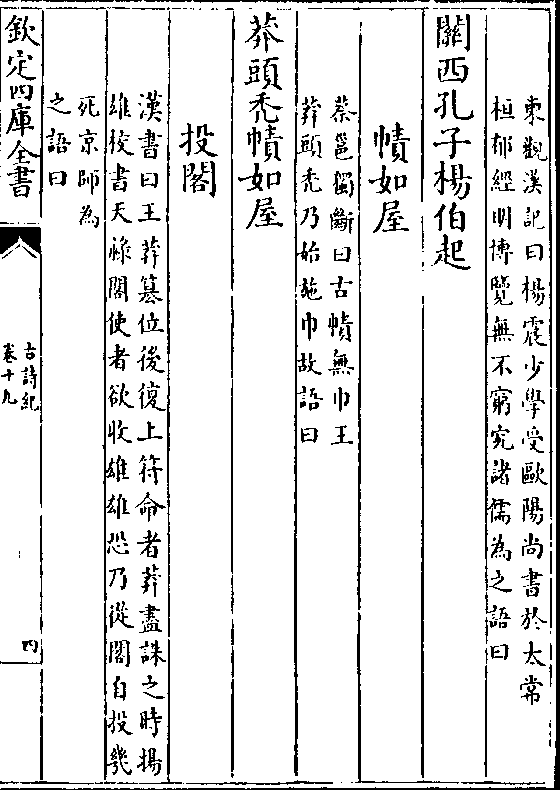 東觀漢記曰楊震少學受歐陽尚書於太常
桓郁經明博覽無不窮究諸儒為之語曰
關西孔子楊伯起
幘如屋
蔡邕獨斷曰古幘無巾王
莽頭禿乃始施巾故語曰
莽頭禿幘如屋
投閣
漢書曰王莽簒位後復上符命者莽盡誅之時揚
雄校書天祿閣使者欲收雄雄恐乃從閣自投幾
死京師為
之語曰
欽定四庫全書
古詩紀
卷十九
四